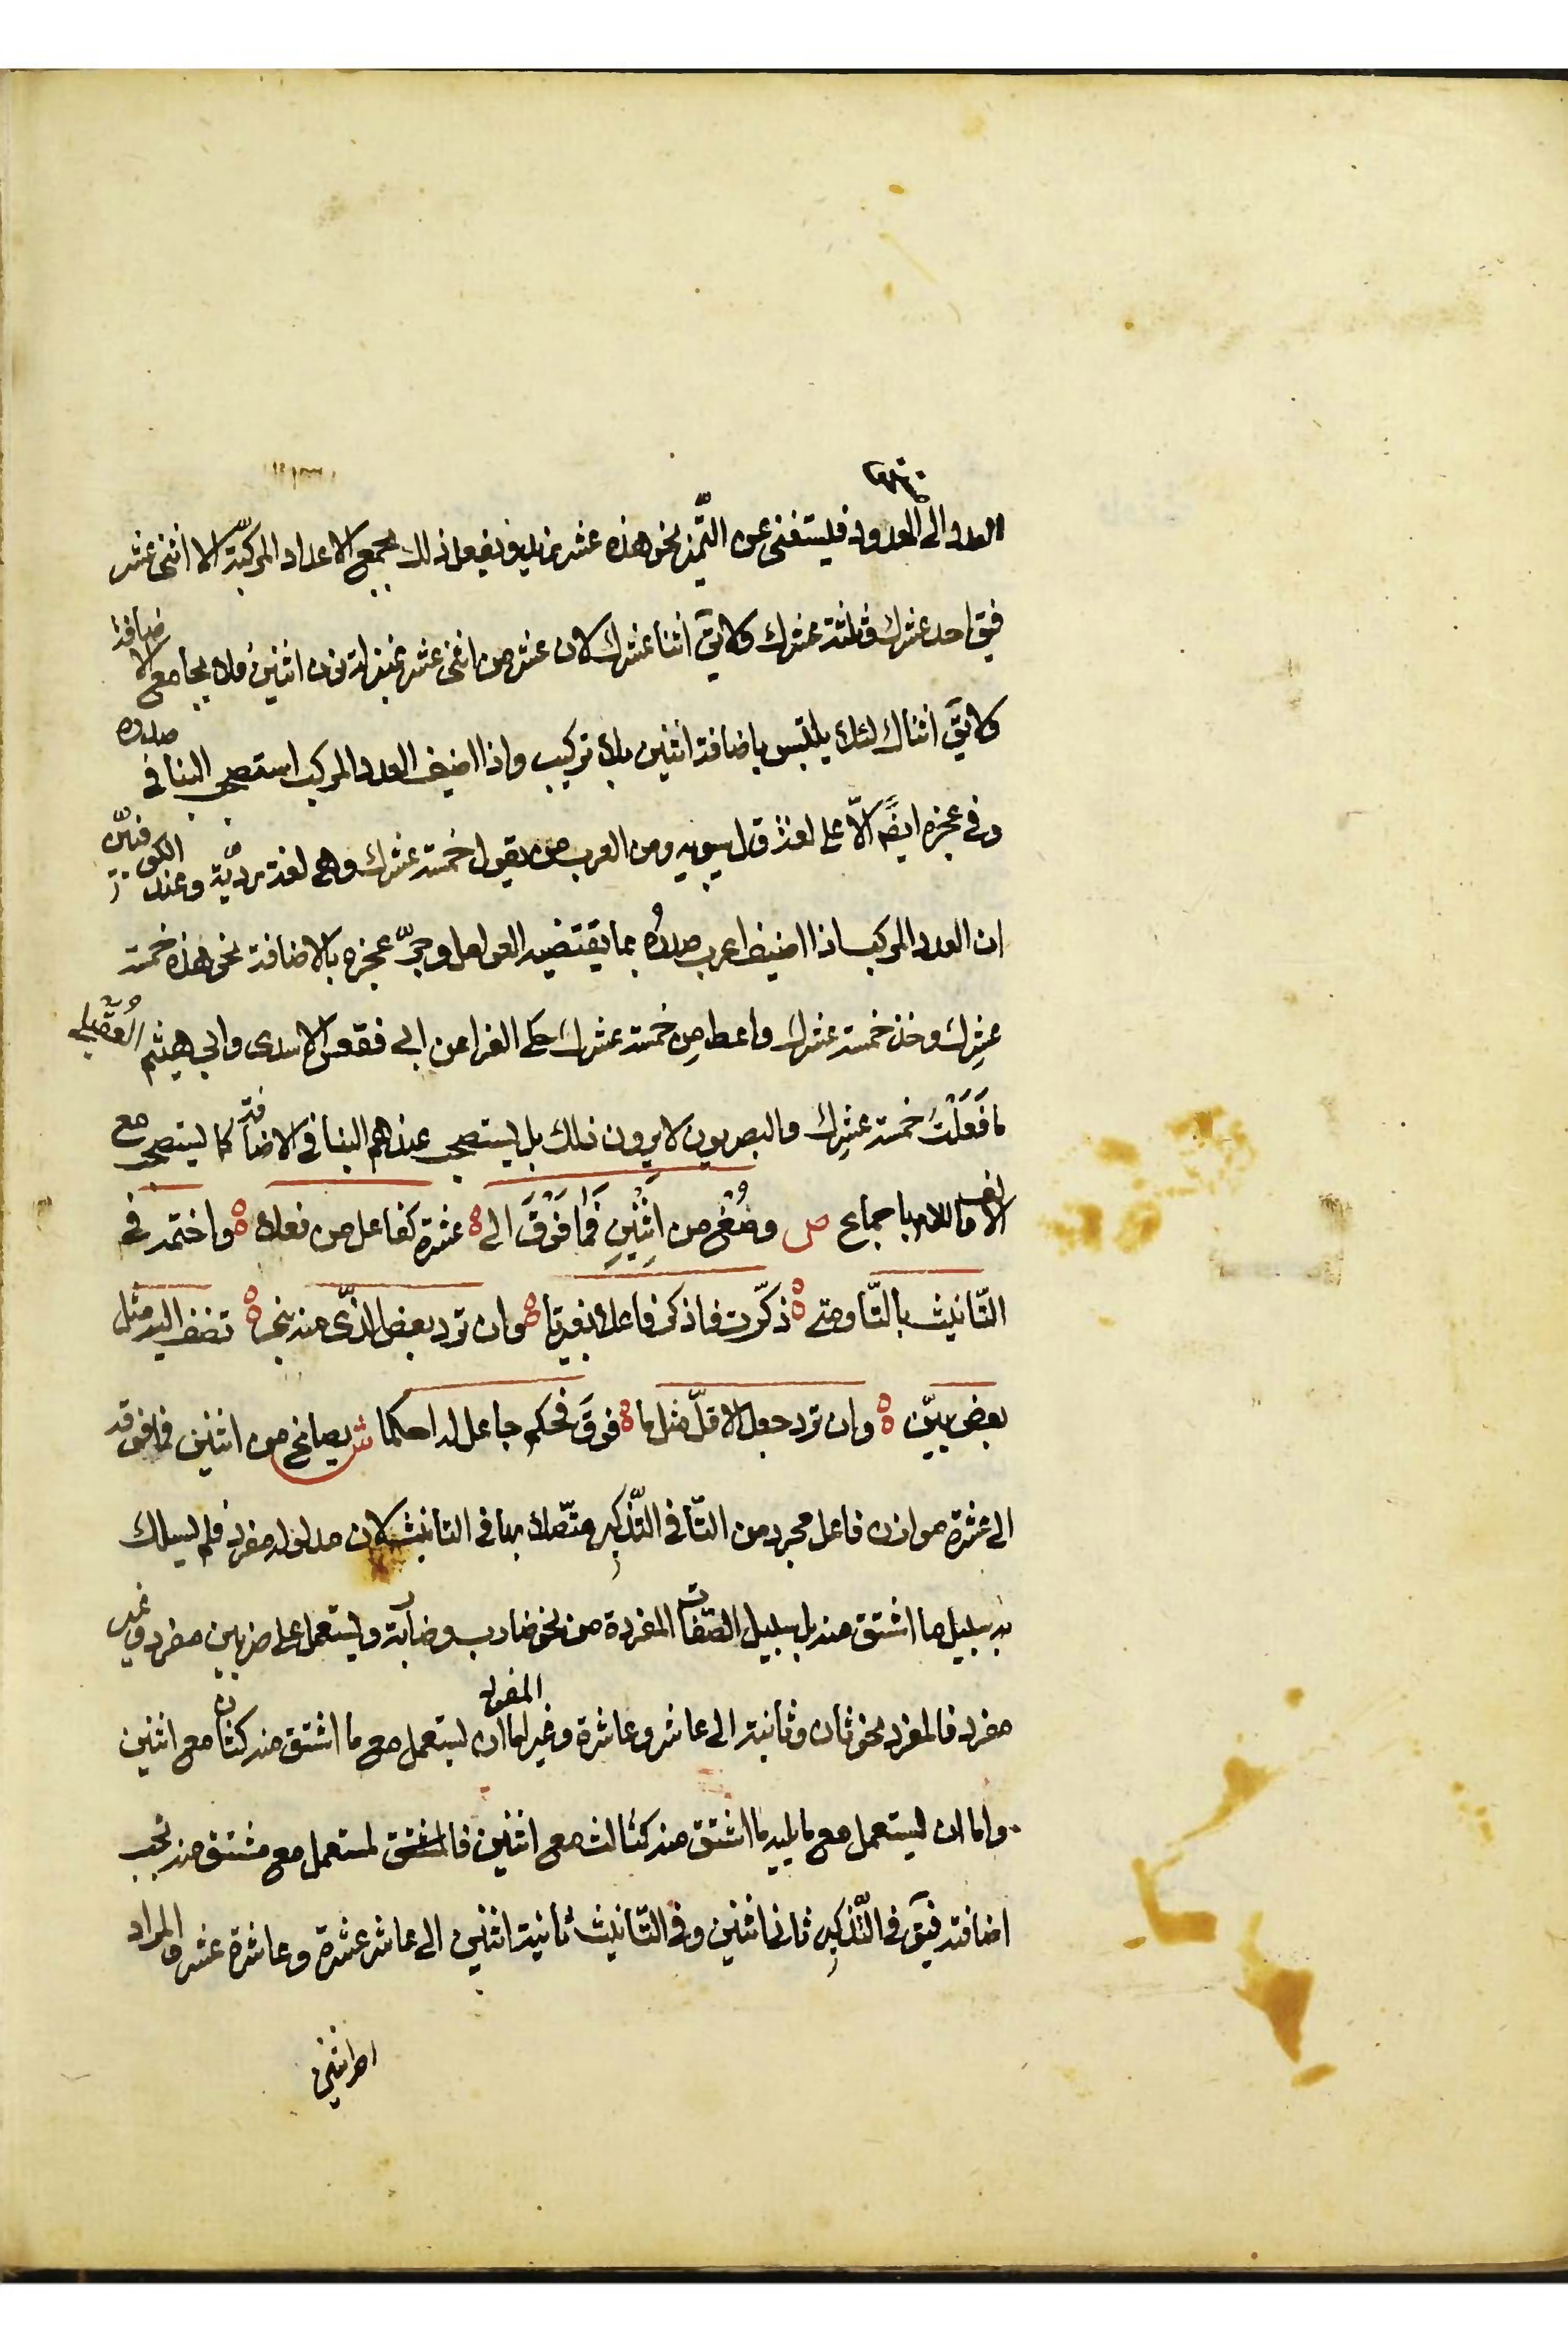 العدد الى المعدود فيستغنى عن التّميز نحو هذه عشر زيد ويفعل ذلك بجميع الاعداد المركبّة الا اثنى عشر
فيق احد عشرك وثلثة عشرك ولا يق اثنا عشرك لان عشر من اثنى عشر بمنزلة نون اثنين فلا يجامع الاضافة
ولا يق اثناك لئلا يلتبس باضافة اثنين بلا تركيب واذا اضيف العدد المركب استصحب البنا في صدره
وفي عجزه ايضً الاّ على لغة قال سيبويه ومن العرب من يقول خمسة عشرك وهى لغة رديّة وعند الكوفيّن
ان العدد المركب اذا اضيف اعرب صدرُه بما يقتضيه العوامل وجرّ عجزه بالاضافة نحو هذه خمسة
عشرِك وخذ خمسة عشرك واعط مِن خمسة عشرك حكى الفرا عن ابى فقعس الاسدى وابى هيثم العُقَيلى
مافَعَلَتْ خمسة عشرِك والبصريون لا يرون ذلك بل يستصحب عندهم البنا فى الاضافة كما يستصحب مع
الالف واللام باجماع ص وصُغْ من اثنَيْنِ فَما فَوْقَ الى ه عشرة كفاعل من فعلا ه واختمه فى
التّانيث بالتّا ومتى ه ذكّرت فاذكر فاعلا بغير تا ه وان ترد بعض الذّى منه بنى ه تضف اليه مثل
بعض بيّن ه وان ترد جعل الاقلّ مثل ما ه فوقَ فحكم جاعل له احكما ش يصاغ من اثنين فما فوقه
الى عشرة موازن فاعل مجرد من التّا فى التّذكير متّصلا بها فى التانيث لان مدلوله مفرد فلم يسلك
به سبيل ما اشتق منه بل سبيل الصّفات المفردة من نحو ضارب وضاربة ويستعمل على ضربين مفرد وغير
مفرد فالمفرد نحو ثان وثانية الى عاشر وعاشرة وغير المفرد اما ان يستعمل مع ما اشتق منه كثان مع اثنين
واما ان يستعمل مع ما يليه ما اشتق منه كثالث مع اثنين فالمشتق لمستعمل مع مشتق منه يجب
اضافته فيق فى التّذكير ثانى اثنين وفى التّانيث ثانية اثنين الى عاشر عشرة وعاشرة عشر والمراد
احد اثنين